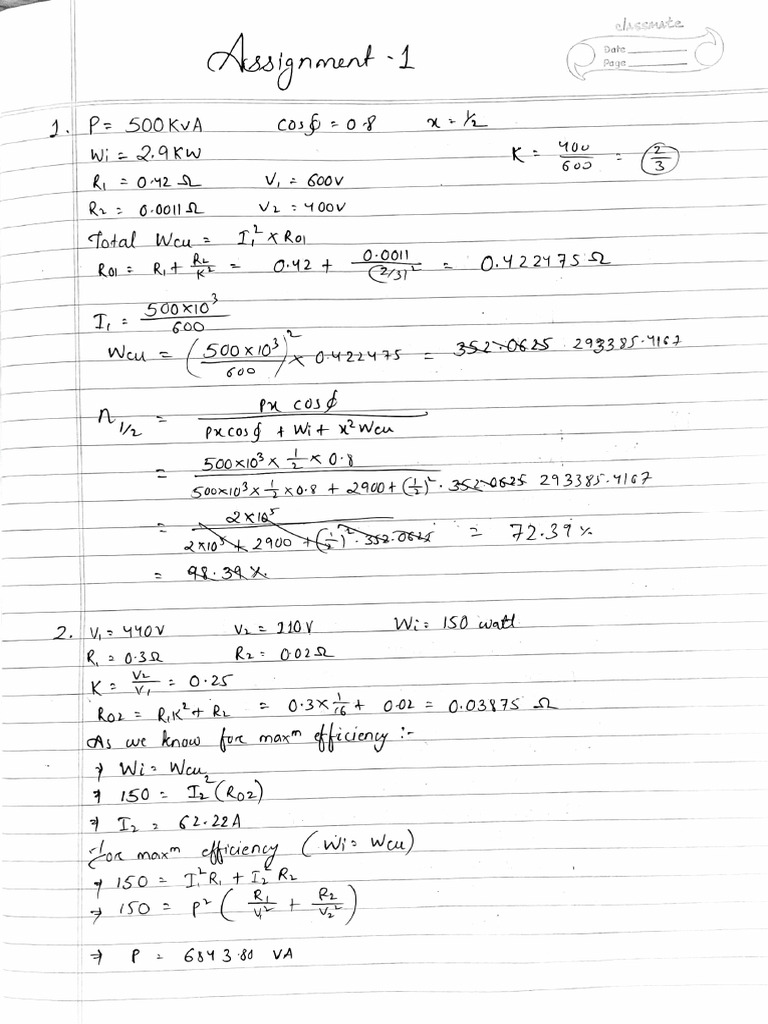 classmate
Date
Page
Assignment - 1
1. P = 500KVA cosϕ = 0.8 x = 1/2
Wi = 2.9KW K = 400/600 = 2/3
R1 = 0.42 Ω V1 = 600V
R2 = 0.0011Ω V2 = 400V
Total Wcu = I1² × R01
R01 = R1 + R2/K² = 0.42 + 0.0011/(2/3)² = 0.422475 Ω
I1 = 500×10³/600
Wcu = (500×10³/600)² × 0.422475 = 352.0625 293385.4167
η1/2 = Px cosϕ / Px cosϕ + Wi + x² Wcu
= 500×10³ × 1/2 × 0.8 / 500×10³ × 1/2 × 0.8 + 2900 + (1/2)² · 352.0625 293385.4167
= 2×10⁵ / 2×10⁵ + 2900 + (1/2)² · 352.0625 = 72.39 %
= 98.39 %.
2. V1 = 440V V2 = 110V Wi = 150 watt
R1 = 0.3Ω R2 = 0.02Ω
K = V2/V1 = 0.25
R02 = R1K² + R2 = 0.3 × 1/16 + 0.02 = 0.03875 Ω
As we know for maxᵐ efficiency :-
⇒ Wi = Wcu
⇒ 150 = I2² (R02)
⇒ I2 = 62.22A
for maxᵐ efficiency (Wi = Wcu)
⇒ 150 = I1² R1 + I2² R2
⇒ 150 = P² (R1/V1² + R2/V2²)
⇒ P = 6843.80 VA